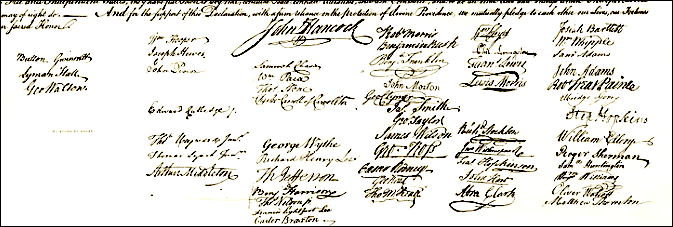 And for the support of this Declaration, with a firm reliance on the protection of divine Providence, we mutually pledge to each other our Lives, our Fortunes
John Hancock
Button Gwinnett
Lyman Hall
Geo Walton.
Wm Hooper
Joseph Hewes
John Penn
Edward Rutledge
Thos Heyward Junr.
Thomas Lynch Junr.
Arthur Middleton
Samuel Chase
Wm Paca
Thos Stone
Charles Carroll of Carrollton
George Wythe
Richard Henry Lee
Th Jefferson
Benj Harrison
Thos Nelson jr
Francis Lightfoot Lee
Carter Braxton
Robt Morris
Benjamin Rush
Benj. Franklin
John Morton
Geo Clymer
Jas. Smith
Geo. Taylor
James Wilson
Geo. Ross
Caesar Rodney
Geo Read
Tho M:Kean
Wm Floyd
Phil. Livingston
Frans. Lewis
Lewis Morris
Richd. Stockton
Jno Witherspoon
Fras. Hopkinson
John Hart
Abra Clark
Josiah Bartlett
Wm Whipple
Saml Adams
John Adams
Robt Treat Paine
Elbridge Gerry
Step Hopkins
William Ellery
Roger Sherman
Saml Huntington
Wm Williams
Oliver Wolcott
Matthew Thornton